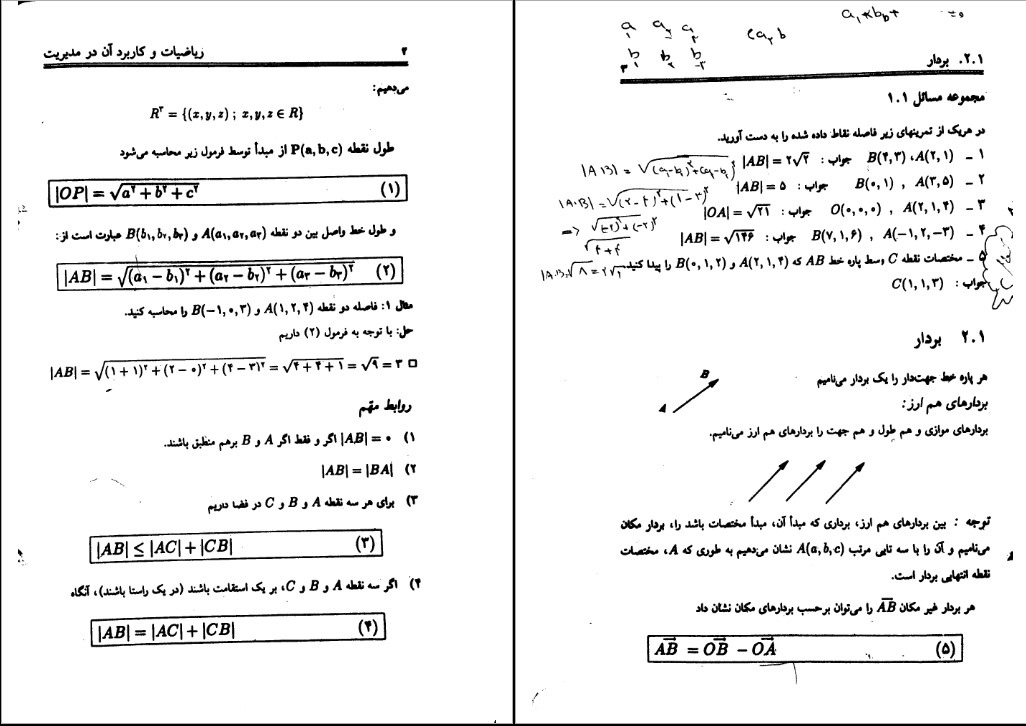 ۲ ریاضیات و کاربرد آن در مدیریت
می‌دهیم:
R^۳ = {(x, y, z) ; x, y, z ∈ R}
طول نقطه P(a, b, c) از مبدأ توسط فرمول زیر محاسبه می‌شود
|OP| = √(a^۲ + b^۲ + c^۲) (۱)
و طول خط واصل بین دو نقطه A(a₁, a₂, a₳) و B(b₁, b₂, b₃) عبارت است از:
|AB| = √((a₁ − b₁)^۲ + (a₂ − b₂)^۲ + (a₃ − b₃)^۲) (۲)
مثال ۱: فاصله دو نقطه A(۱, ۲, ۴) و B(−۱, ۰, ۳) را محاسبه کنید.
حل: با توجه به فرمول (۲) داریم
|AB| = √((۱ + ۱)^۲ + (۲ − ۰)^۲ + (۴ − ۳)^۲) = √(۴ + ۴ + ۱) = √۹ = ۳ □
روابط مهم
۱) |AB| = ۰ اگر و فقط اگر A و B برهم منطبق باشند.
۲) |AB| = |BA|
۳) برای هر سه نقطه A و B و C در فضا داریم
|AB| ≤ |AC| + |CB| (۳)
۴) اگر سه نقطه A و B و C، بر یک استقامت باشند (در یک راستا باشند)، آنگاه
|AB| = |AC| + |CB| (۴)
a₁ a₂ a₃
b₁ b₂ b₃
۲.۱. بردار
۳
مجموعه مسائل ۱.۱
در هریک از تمرینهای زیر فاصله نقاط داده شده را به دست آورید.
۱ ـ A(۲, ۱)، B(۴, ۳) جواب: |AB| = ۲√۲
|AB| = √((a₁−b₁)^۲+(a₂−b₂)^۲)
۲ ـ A(۳, ۵) , B(۰, ۱) جواب: |AB| = ۵
|AB| = √((۲−۴)^۲+(۱−۳)^۲)
۳ ـ A(۲, ۱, ۴) , O(۰, ۰, ۰) جواب: |OA| = √۲۱
⇒ √((−۲)^۲+(−۲)^۲)
۴ ـ A(−۱, ۲, −۳) , B(۷, ۱, ۶) جواب: |AB| = √۱۴۶
√(۴+۴)
۵ ـ مختصات نقطه C وسط پاره خط AB که A(۲, ۱, ۴) و B(۰, ۱, ۲) را پیدا کنید.
|AB| √۸ = ۲√۲
جواب: C(۱, ۱, ۳)
۲.۱ بردار
هر پاره خط جهت‌دار را یک بردار می‌نامیم
A B
بردارهای هم ارز:
بردارهای موازی و هم طول و هم جهت را بردارهای هم ارز می‌نامیم.
توجه : بین بردارهای هم ارز، برداری که مبدأ آن، مبدأ مختصات باشد را، بردار مکان
می‌نامیم و آن را با سه تایی مرتب A(a, b, c) نشان می‌دهیم به طوری که A، مختصات
نقطه انتهایی بردار است.
هر بردار غیر مکان AB را می‌توان برحسب بردارهای مکان نشان داد
AB = OB − OA (۵)